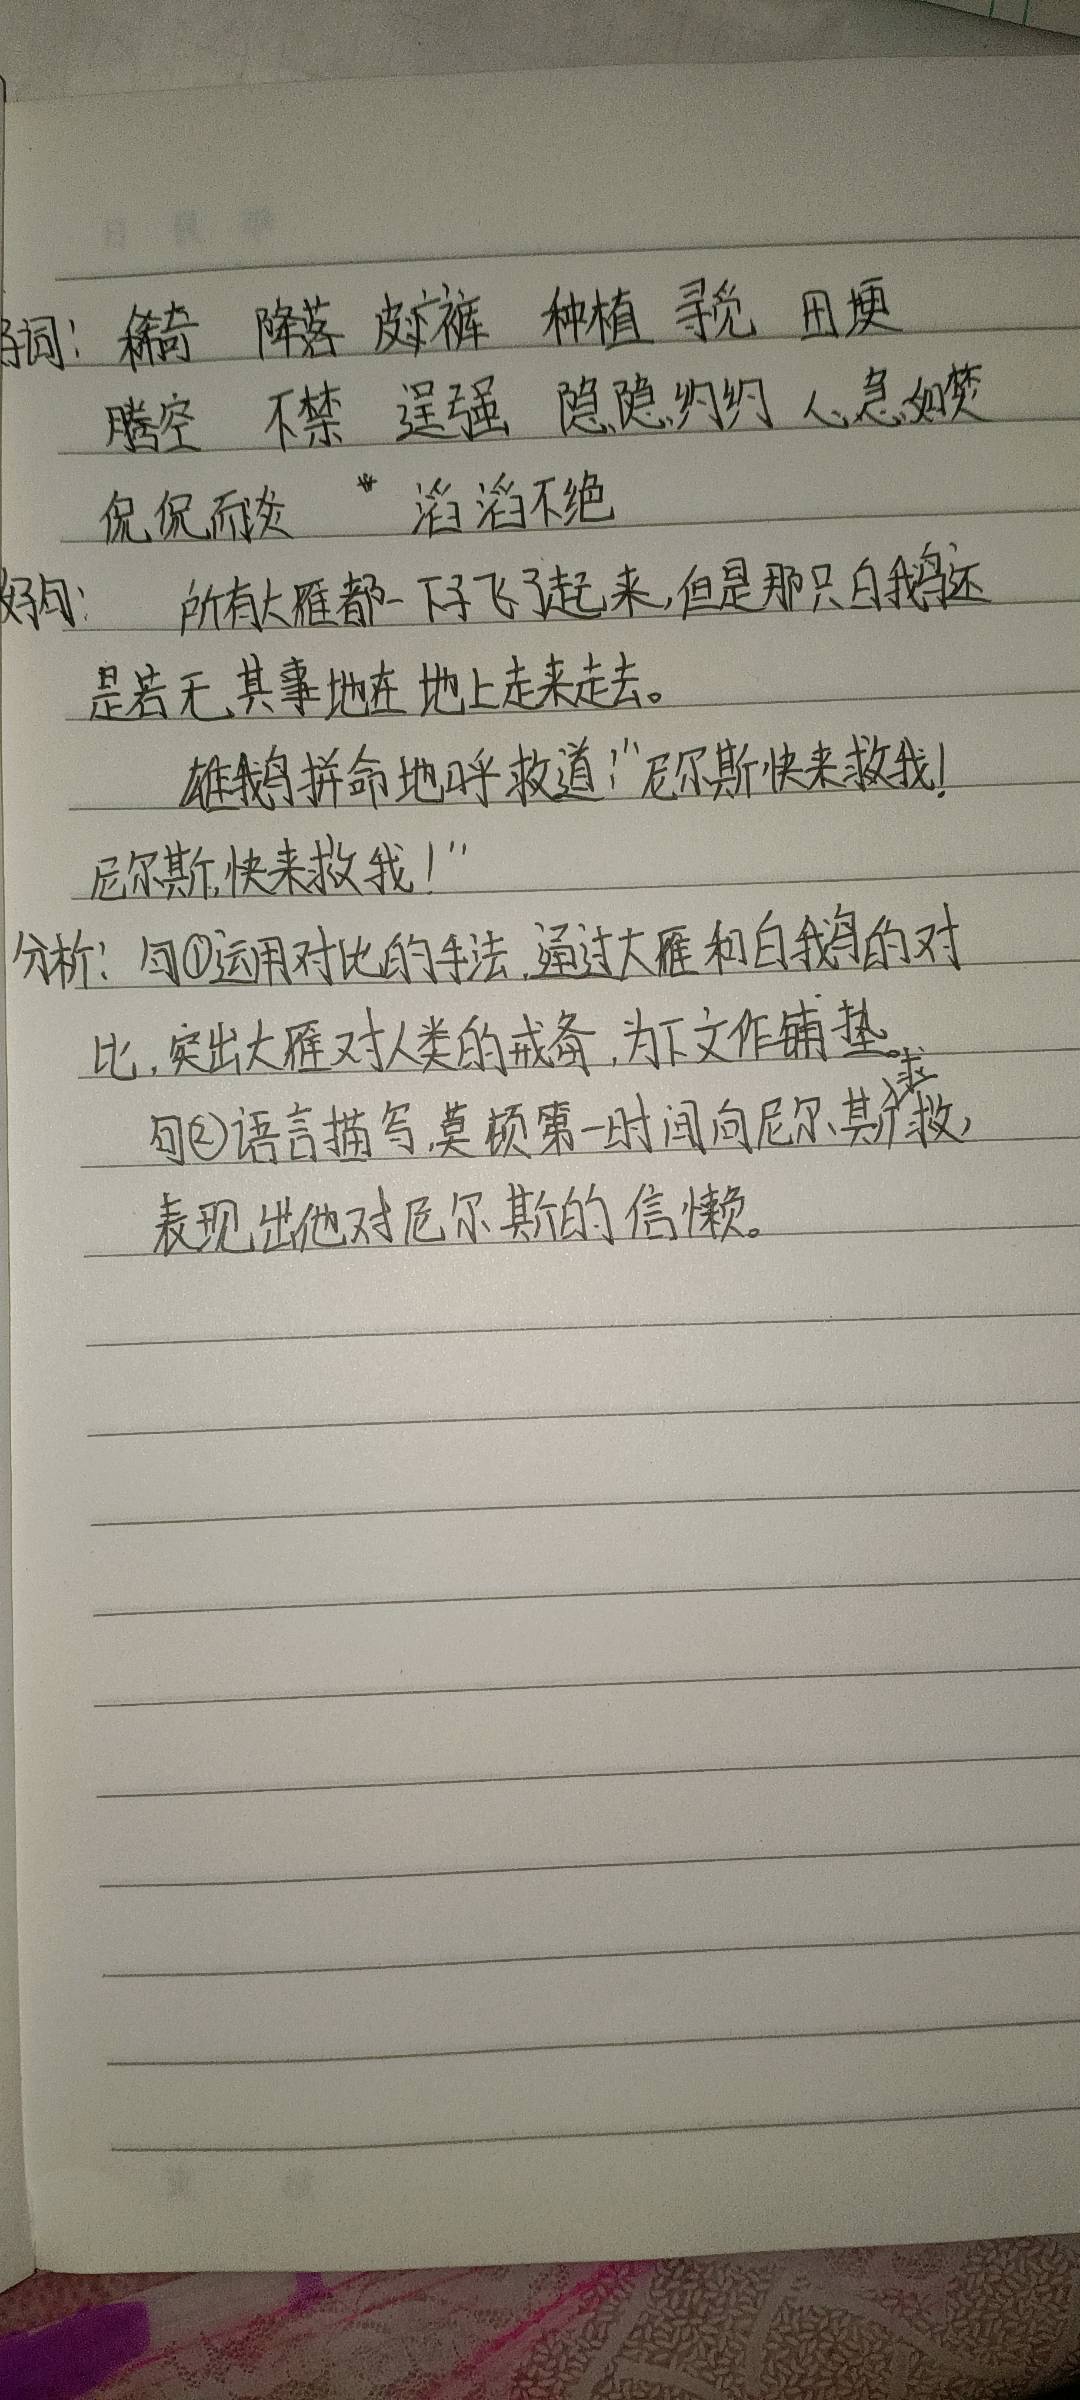 好词：稀奇 降落 皮裤 种植 寻觅 田埂
腾空 不禁 逞强 隐隐约约 心急如焚
侃侃而谈 滔滔不绝
好句： 所有大雁都一下子飞了起来，但是那只白鹅还
是若无其事地在地上走来走去。
雄鹅拼命地呼救道：“尼尔斯快来救我！
尼尔斯，快来救我！”
分析：句①运用对比的手法，通过大雁和白鹅的对
比，突出大雁对人类的戒备，为下文作铺垫。
句②语言描写，莫顿第一时间向尼尔斯求救，
表现出他对尼尔斯的信懒。